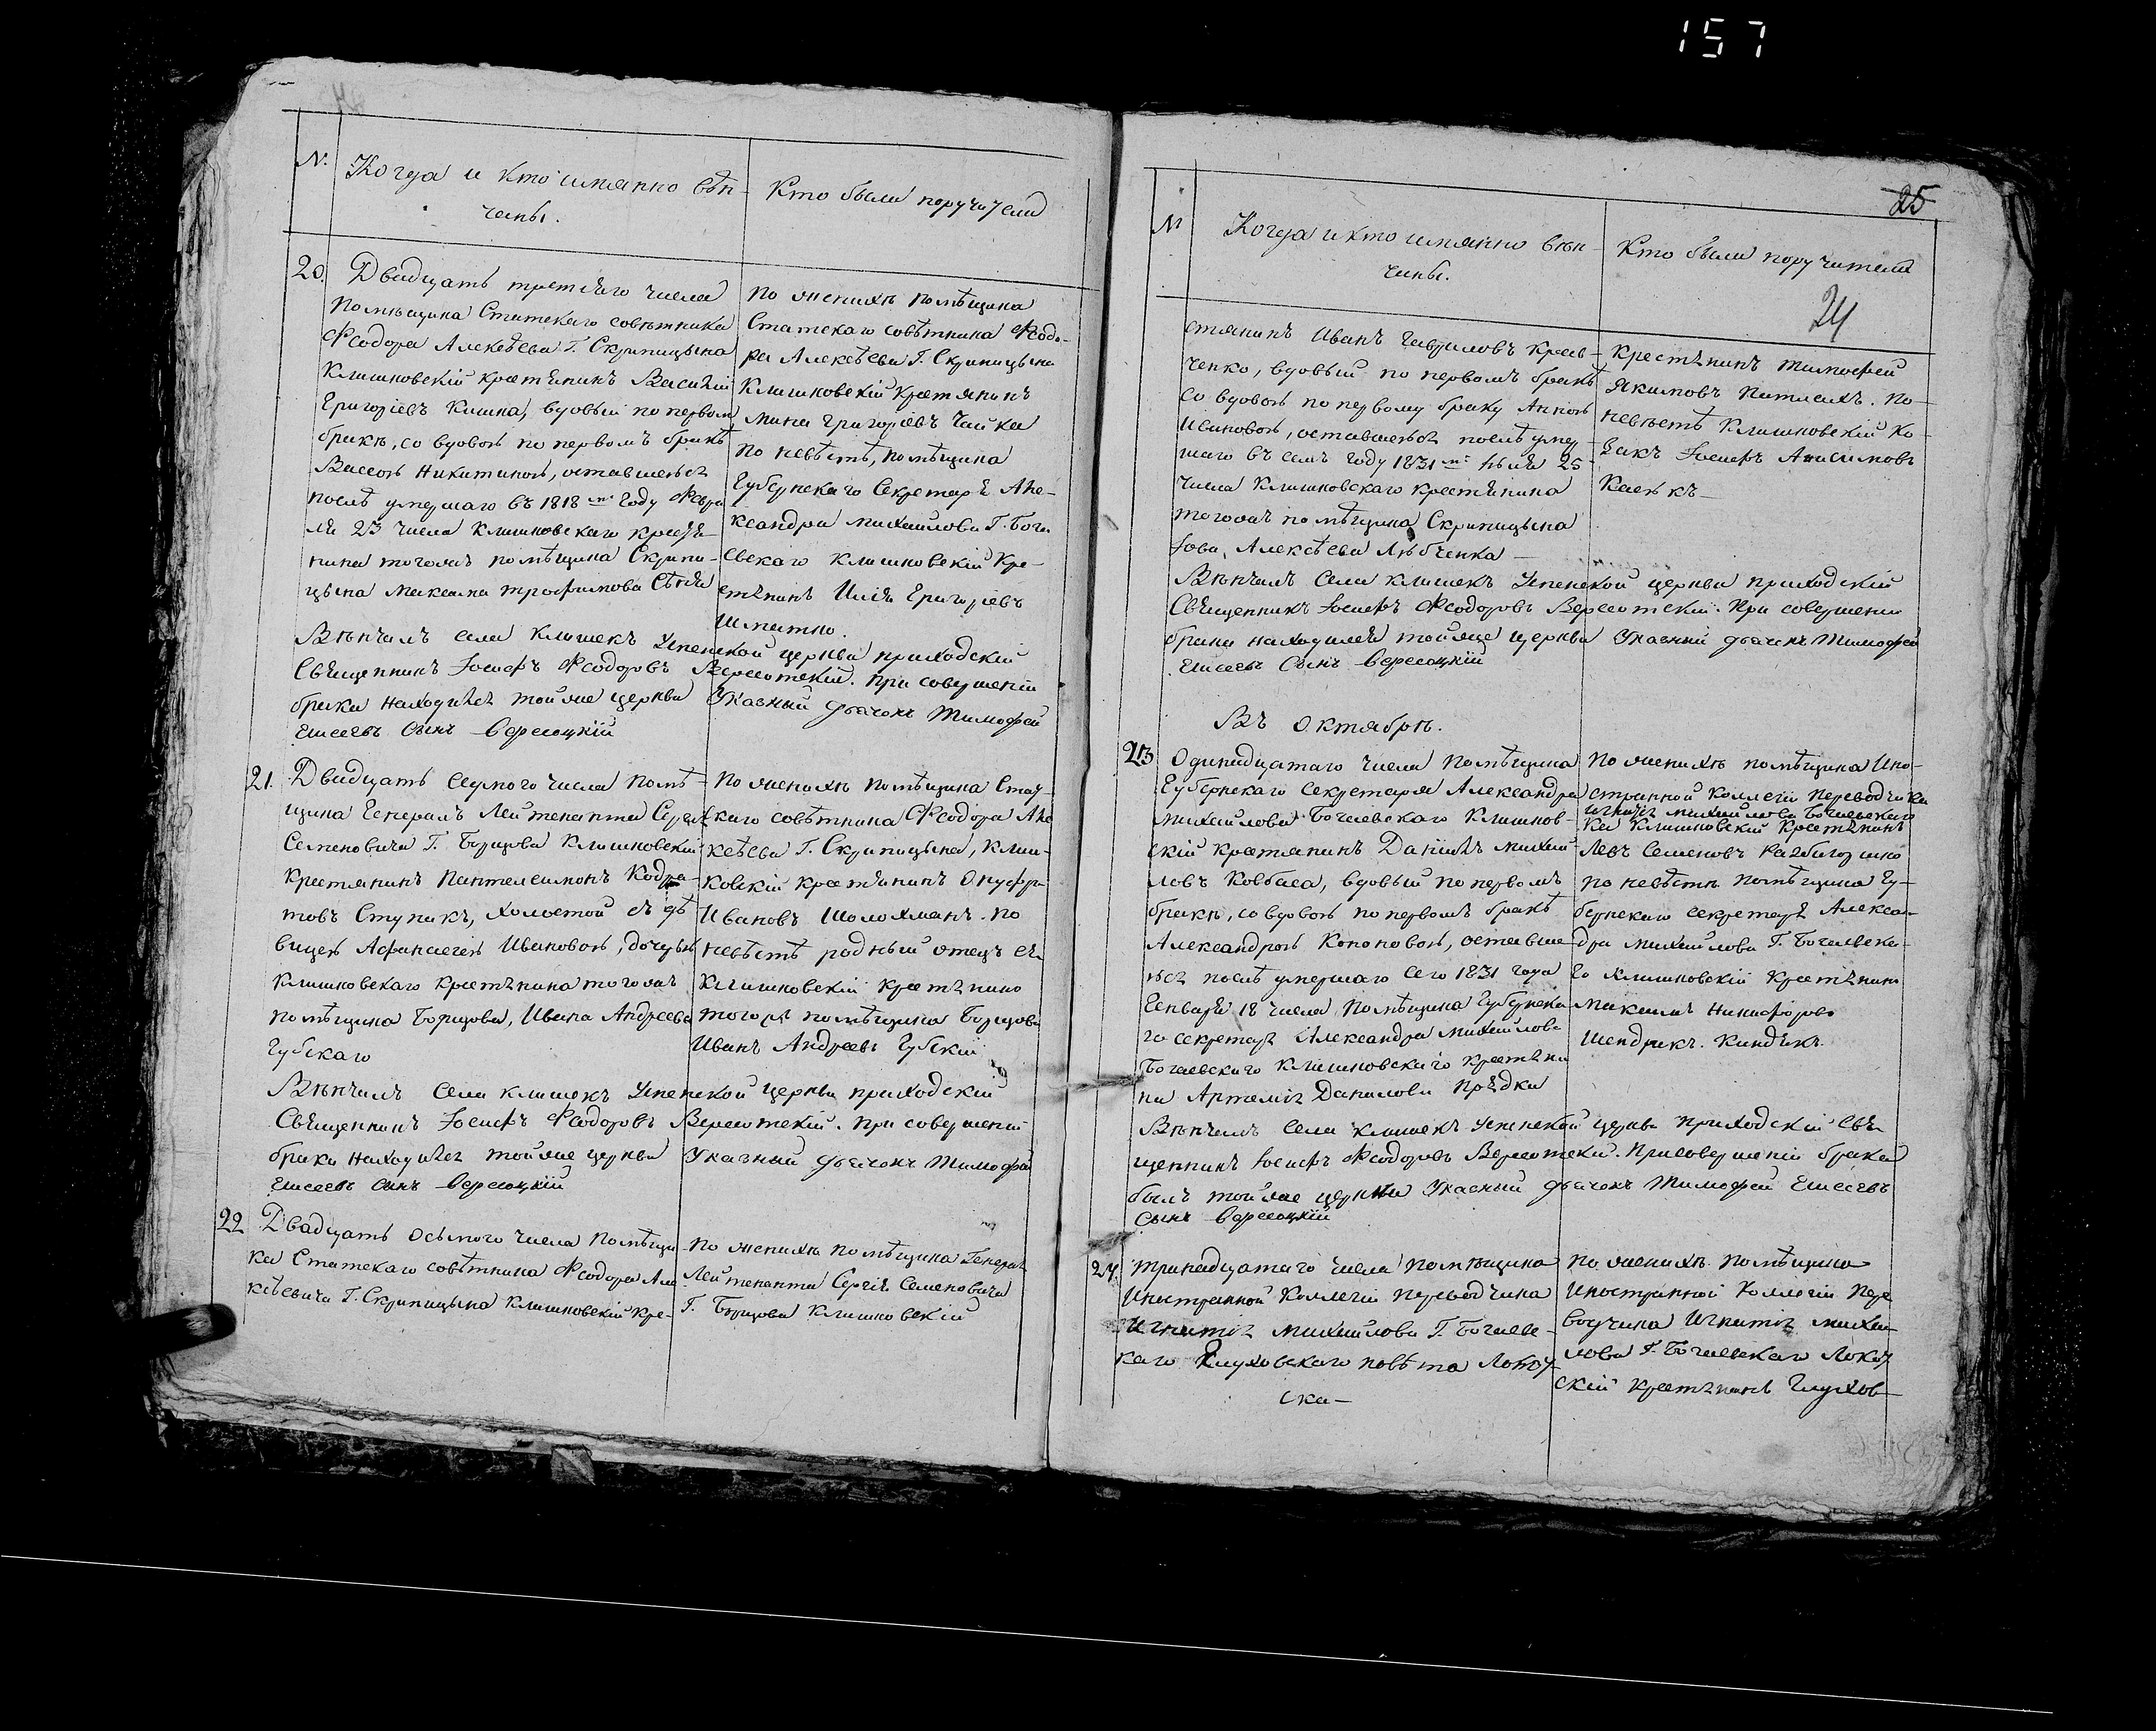 157
№.
Когда и кто имянно вѣн-
чаны.
Кто были поручители
20.
Двадцать третяго числа
Помѣщика Статскаго совѣтника
Феодора Алексѣева Г. Скрипицына
Клишковскій крестянинъ Василій
Григоріевъ Клишка, вдовый по первомъ
бракѣ, со вдовою по первомъ бракѣ
Вассою Никитиною, оставшеюся
послѣ умершаго въ 1818 мъ году Февра
ля 23 числа Клишковскаго крестя-
нина тогожъ помѣщика Скрипи-
цына Максима Трофимова
По женихѣ помѣщика
Статскаго совѣтника Феодо-
ра Алексѣева Г. Скрипицына
Клишковскій крестянинъ
Мина Григоріевъ Чайка
По невѣстѣ, помѣщика
Губернскаго Секретаря Але-
ксандра Михайлова Г. Бога
евскаго Клишковскій Кре-
стянинъ Илія Григоріевъ
Вѣнчалъ села Клишекъ Успенской церкви приходскій
Священникъ Іосифъ Феодоровъ Вересотскій. При совершеніи
брака находился тойже церкви Указный дьячокъ Тимофей
Елисеевъ Сынъ Вересоцкій
21.
Двадцать седмого числа помѣ-
щика Генералъ Лейтенанта Сергѣя
Семеновича Г. Борщова Клишковскій
Крестянинъ Пантелеимонъ Кодра-
товъ Ступакъ, холостой съ дѣ
вицею Афанасіею Ивановою, дочерью
Клишковскаго Крестянина тогожъ
помѣщика Борщова, Ивана Андреева
Губскаго
По женихѣ помѣщика Стат-
скаго совѣтника Феодора Але
ксѣева Г. Скрипицына, Клиш-
ковскій Крестянинъ Онуфри
Ивановъ Шолохманъ. По
невѣстѣ родный отецъ ея
Клишковскій крестянинъ
тогожъ помѣщика Борщова
Иванъ Андреевъ Губскій
Вѣнчалъ села Клишекъ Успенской церкви приходскій
Священникъ Іосифъ Феодоровъ Вересотскій. При совершеніи
брака находился тойже церкви Указный дьячокъ Тимофей
Елисеевъ Сынъ Вересоцкій
22
Двадцать осьмого числа Помѣщи
ка Статскаго совѣтника Феодора Але
ксѣевича Г. Скрипицына Клишковскій Кре-
По женихѣ помѣщика Генералъ
Лейтенанта Сергія Семеновича
Г. Борщова Клишковскій
25
№
Когда и кто имянно вѣн-
чаны.
Кто были поручители
24
стянинъ Иванъ Гавриловъ Крав-
ченко, вдовый по первомъ бракѣ
со вдовою по первому браку Анною
Ивановою, оставшеюся послѣ умер
шаго въ семъ году 1831 мъ Іюля 25
числа Клишковскаго Крестянина
тогожъ помѣщика Скрипицына
Іова Алексѣева
Крестянинъ Тимофей
Якимовъ По-
невѣстѣ Клишковскій Ко-
закъ Іосифъ Анисимовъ
Вѣнчалъ села Клишекъ Успенской церкви приходскій
Священникъ Іосифъ Феодоровъ Вересотскій. При совершеніи
брака находился тойже церкви Указный дьячокъ Тимофей
Елисеевъ Сынъ Вересоцкій
Въ Октябрѣ.
23
Одинадцатаго числа Помѣщика
Губернскаго Секретаря Александра
Михайлова Богаевскаго Клишков-
скій Крестянинъ Даніилъ Михай-
ловъ Ковбаса, вдовый по первомъ
бракѣ, со вдовою по первомъ бракѣ
Александрою Кононовою, оставше
юся послѣ умершаго сего 1831 года
Генваря 18 числа, Помѣщика Губернска
го секретаря Александра Михайлова
Богаевскаго Клишковскаго крестяни
на Артемія Данилова Прядки
По женихѣ помѣщика Ино-
странной Коллегіи Переводчика
Игнатія Михайлова Богаевскаго
Клишковскій Крестянинъ
Левъ Семеновъ
по невѣстѣ помѣщика Гу-
бернскаго секретаря Алексан-
дра Михайлова Г. Богаевска-
го Клишковскій Крестянинъ
Максимъ Никифоровъ
Вѣнчалъ села Клишекъ Успенской церкви приходскій Свя
щенникъ Іосифъ Феодоровъ Вересотскій. При совершеніи брака
былъ тойже церкви Указный дьячокъ Тимофей Елисеевъ
Сынъ Вересоцкій
24.
Тринадцатаго числа Помѣщика
Иностранной Коллегіи переводчика
Игнатія Михайлова Г. Богаевс-
каго Глуховскаго повѣта
ска-
По женихѣ помѣщика
Иностранной Коллегіи Пере
водчика Игнатія Михаи
лова Г. Богаевскаго
скій крестянинъ Глухов-